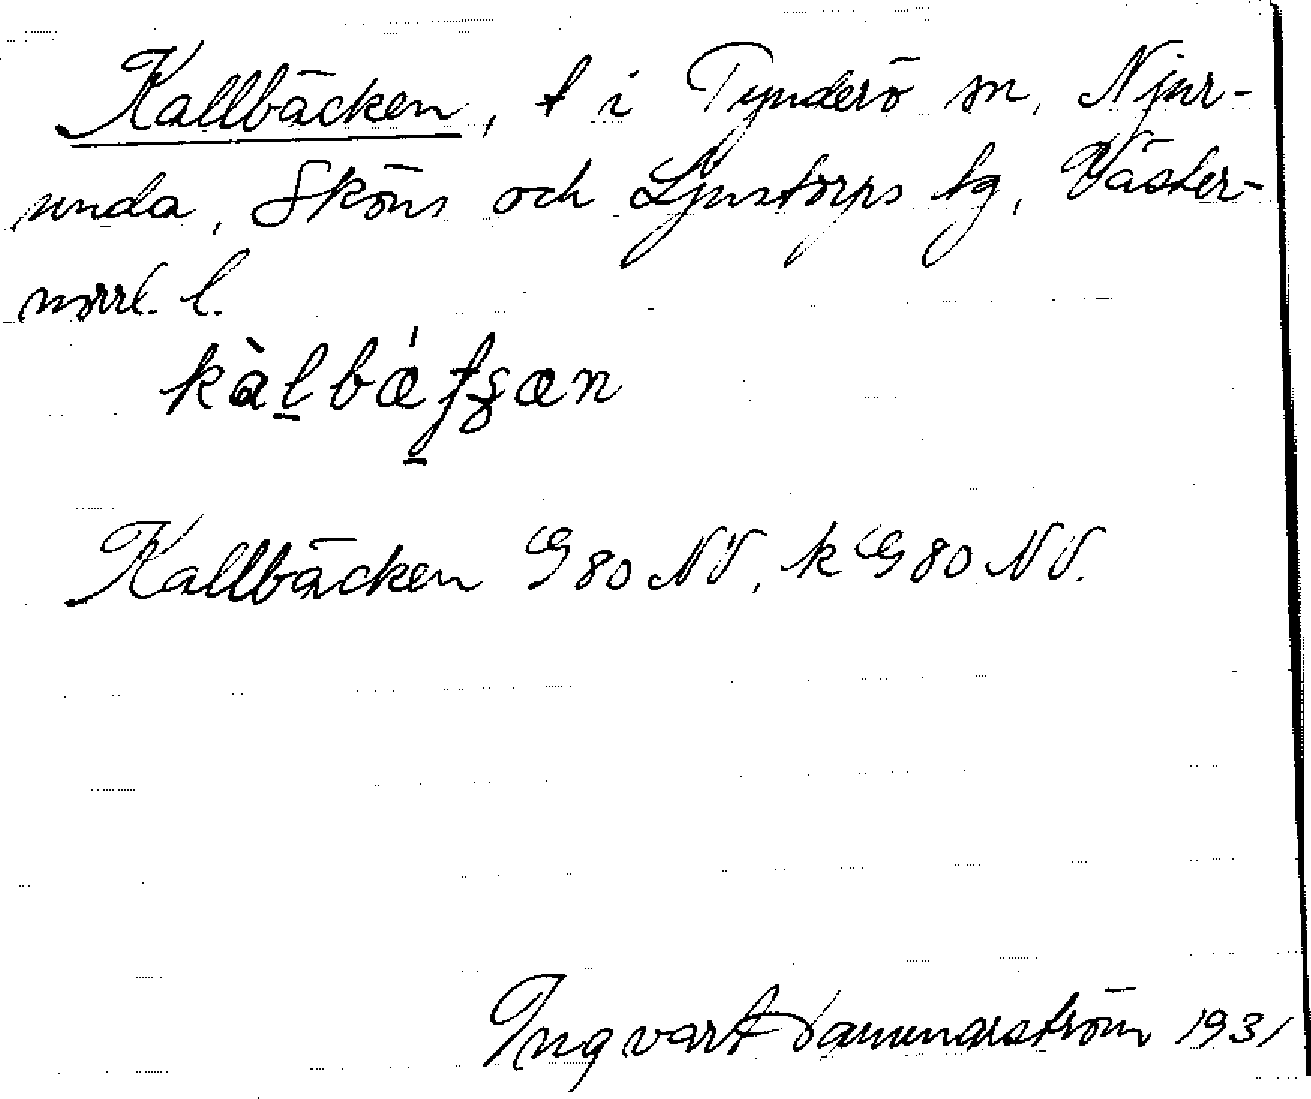 Kallbäcken, t i Tynderö sn, Njur-
unda, Sköns och Ljustorps tg, Väster-
norrl. l.
Kallbäcken G 80 NV, k G 80 NV.
Ingvart 1931